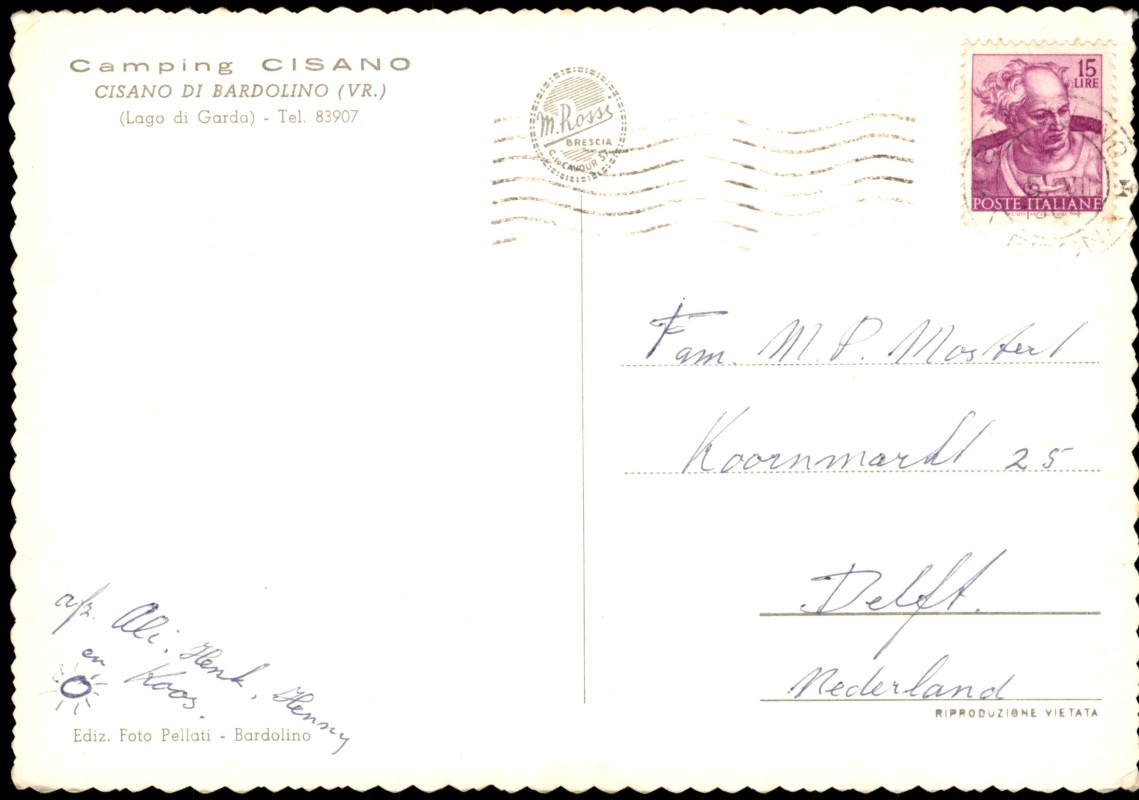 Camping CISANO
CISANO DI BARDOLINO (VR.)
(Lago di Garda) - Tel. 83907
M. Rossi
BRESCIA
15
LIRE
POSTE ITALIANE
Fam. M. P. Mostert
Koornmarkt 25
Delft.
Nederland
RIPRODUZIONE VIETATA
afz. Ali, Henk, Henny
en Koos.
Ediz. Foto Pellati - Bardolino